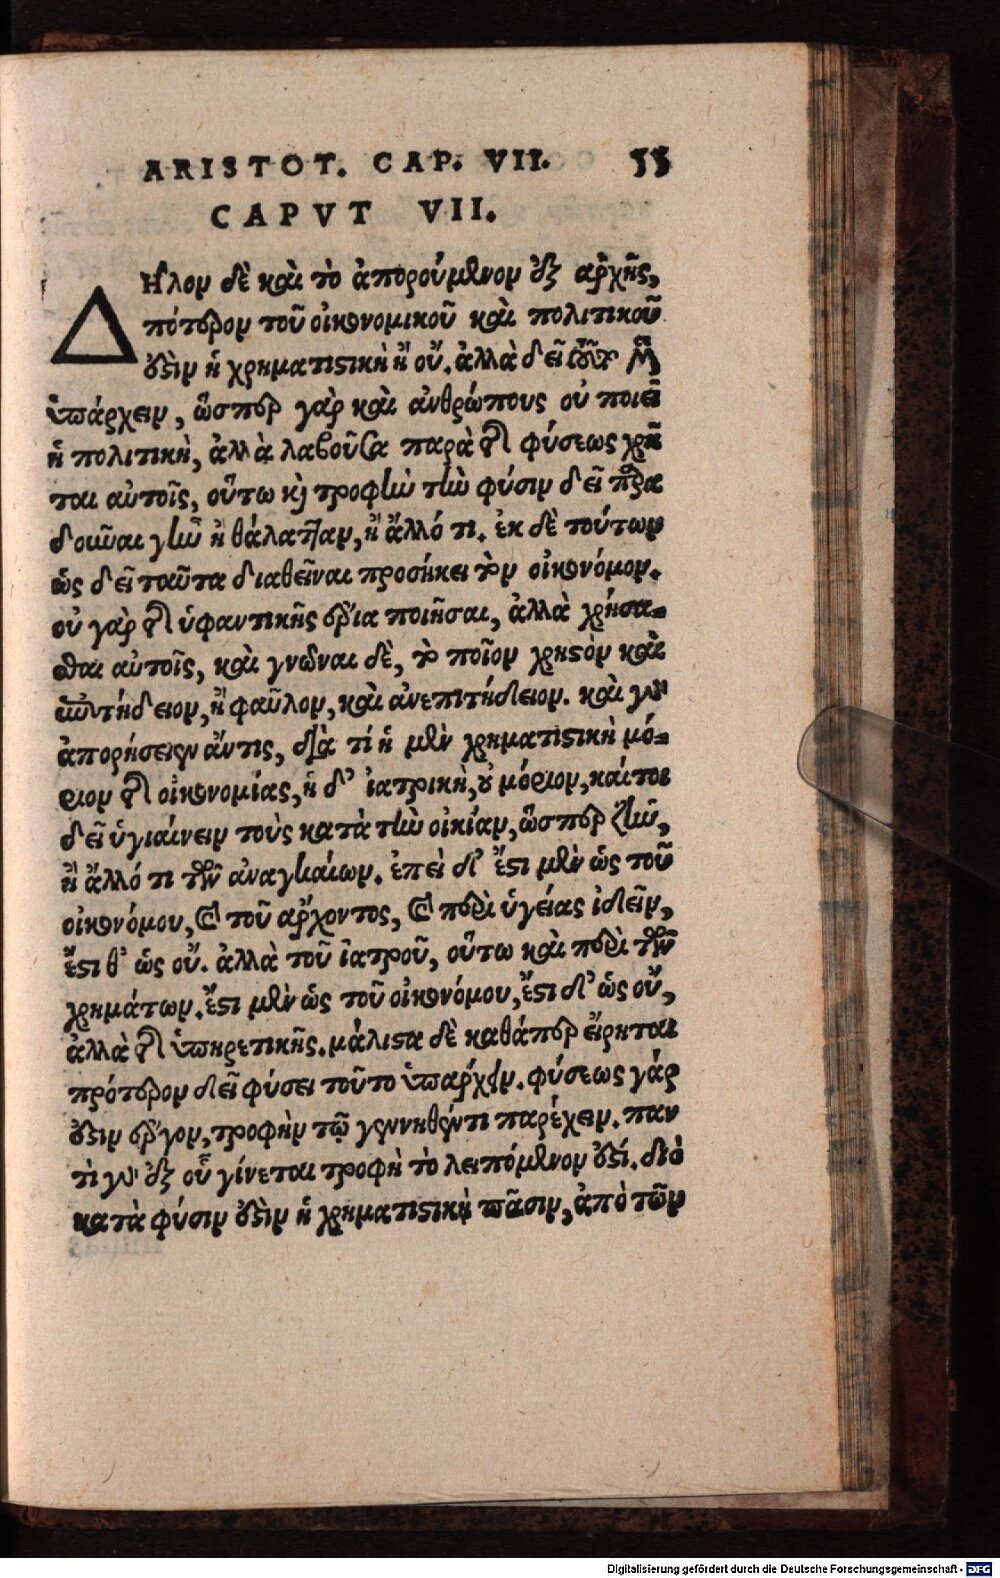 ARISTOT. CAP. VII. 55
CAPVT VII.
ΔΗλον δὲ καὶ τὸ ἀπορούμενον ἐξ ἀρχῆς,
πότερον τοῦ οἰκονομικοῦ καὶ πολιτικοῦ
ἐστὶν ἡ χρηματιστικὴ ἢ οὔ. ἀλλὰ δεῖ τοῦτο μὲν
ὑπάρχειν, ὥσπερ γὰρ καὶ ἀνθρώπους οὐ ποιεῖ
ἡ πολιτικὴ, ἀλλὰ λαβοῦσα παρὰ τῆς φύσεως χρῆ
ται αὐτοῖς, οὕτω καὶ τροφὴν τὴν φύσιν δεῖ παρα
δοῦναι γῆν ἢ θάλατταν, ἢ ἄλλό τι. ἐκ δὲ τούτων
ὡς δεῖ ταῦτα διαθεῖναι προσήκει τὸν οἰκονόμον.
οὐ γὰρ τῆς ὑφαντικῆς ἔρια ποιῆσαι, ἀλλὰ χρήσα-
σθαι αὐτοῖς, καὶ γνῶναι δὲ, τὸ ποῖον χρηστὸν καὶ
ἐπιτήδειον, ἢ φαῦλον, καὶ ἀνεπιτήδειον. καὶ γὰρ
ἀπορήσειεν ἄντις, διὰ τί ἡ μὲν χρηματιστικὴ μό-
ριον τῆς οἰκονομίας, ἡ δ' ἰατρικὴ, οὐ μόριον, καίτοι
δεῖ ὑγιαίνειν τοὺς κατὰ τὴν οἰκίαν, ὥσπερ ζῆν,
ἢ ἄλλό τι τῶν ἀναγκαίων. ἐπεὶ δ' ἔστι μὲν ὡς τοῦ
οἰκονόμου, καὶ τοῦ ἄρχοντος, καὶ περὶ ὑγείας ἰδεῖν,
ἔστι θ' ὡς οὔ. ἀλλὰ τοῦ ἰατροῦ, οὕτω καὶ περὶ τῶν
χρημάτων. ἔστι μὲν ὡς τοῦ οἰκονόμου, ἔστι δ' ὡς οὔ,
ἀλλὰ τῆς ὑπηρετικῆς. μάλιστα δὲ καθάπερ εἴρηται
πρότερον δεῖ φύσει τοῦτο ὑπάρχειν. φύσεως γάρ
ἐστιν ἔργον, τροφὴν τῷ γεννηθέντι παρέχειν. παν
τὶ γὰρ ἐξ οὗ γίνεται τροφὴ τὸ λειπόμενον ἐστί. διὸ
κατὰ φύσιν ἐστὶν ἡ χρηματιστικὴ πᾶσιν, ἀπὸ τῶν
Digitalisierung gefördert durch die Deutsche Forschungsgemeinschaft - DFG